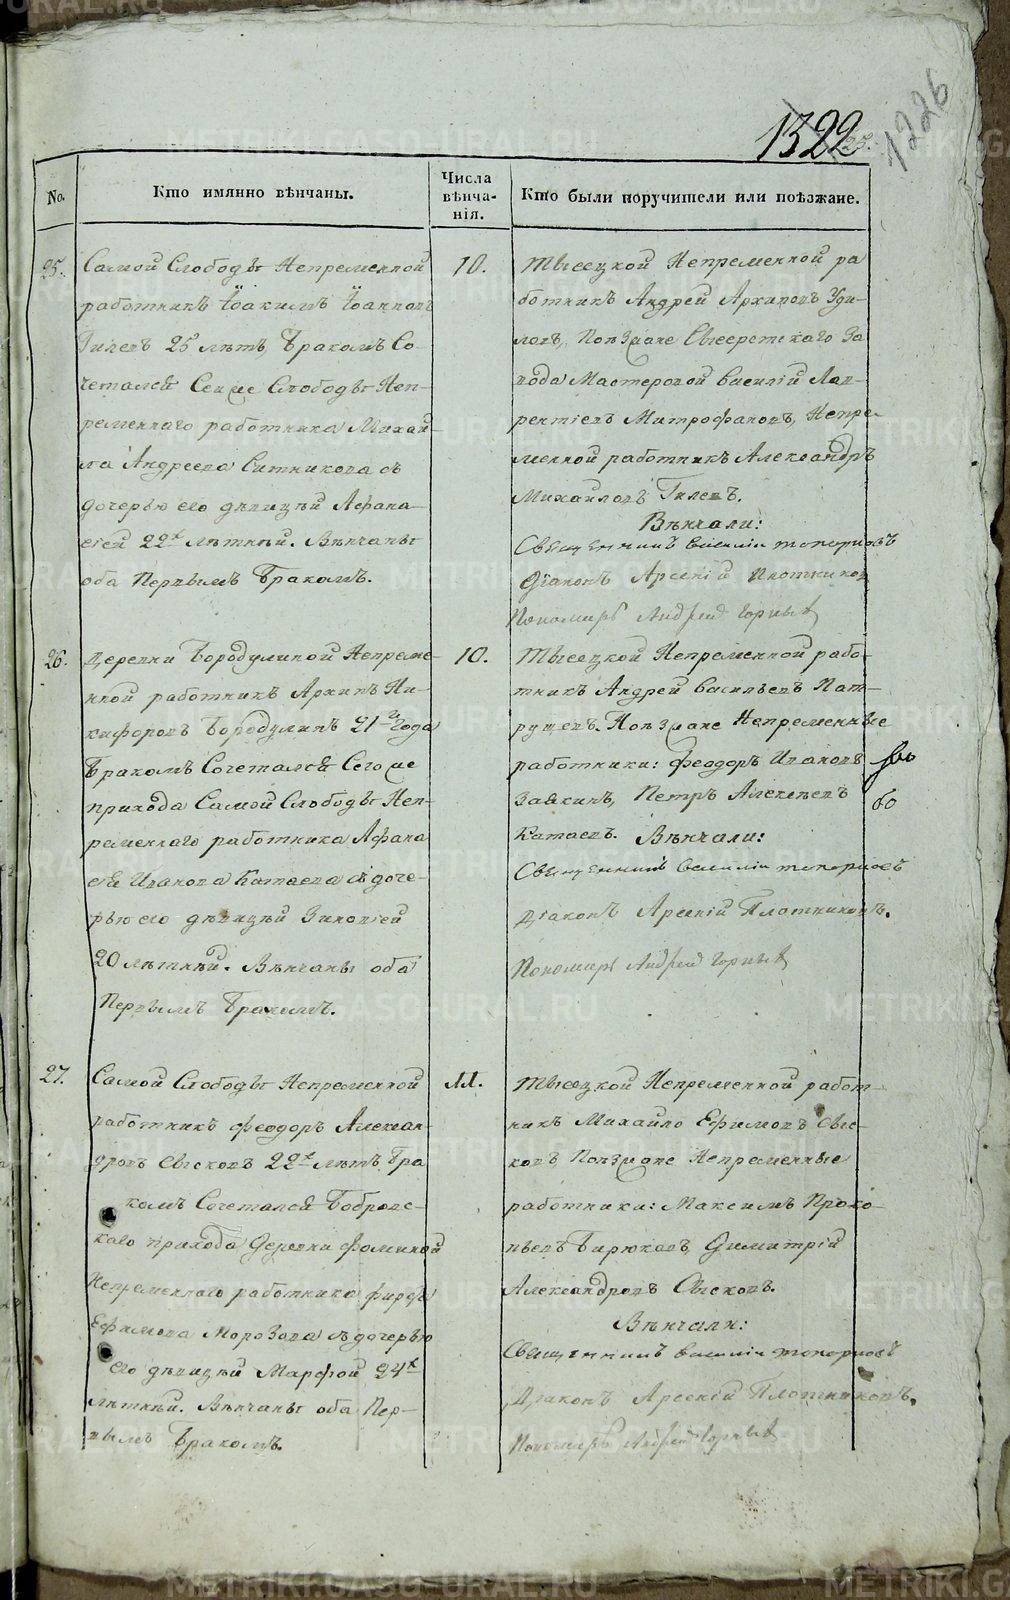 1322
1226
No.
Кто имянно вѣнчаны.
Числа
вѣнча-
нія.
Кто были поручители или поѣзжане.
25.
Самой Слободы Непременной
работникъ Іоакимъ Іоанновъ
Гилевъ 25 лѣтъ, Бракомъ Со-
четался Сей же Слободы Неп-
ременнаго работника Михай-
ла Андреева Ситникова съ
дочерью его дѣвицей Афана-
сіей 22х лѣтней. Вѣнчаны
оба Первымъ Бракомъ.
10.
Тысецкой Непременной ра
ботникъ Андрей Архиповъ Уди-
ловъ, Поѣзжане Сысертскаго За
вода Мастеровой Василій Лав-
рентіевъ Митрофановъ, Непре-
менной работникъ Александръ
Михайловъ Гилевъ.
Вѣнчали:
Священникъ Василій Топорковъ
Діаконъ Арсеній Плотников
Пономарь Андрей Горных
26.
Деревни Бородулиной Непреме-
нной работникъ Архипъ Ни-
кифоровъ Бородулинъ 21го года
Бракомъ Сочетался Сего же
прихода Самой Слободы Неп-
ременнаго работника Афана
сея Иванова Катаева съ доче-
рью его дѣвицей Зиновіей
20 лѣтней. Вѣнчаны оба
Первымъ Бракомъ.
10.
Тысецкой Непременной рабо-
тникъ Андрей Васильевъ Пат-
рушевъ. Поѣзжане Непременные
работники: Феодоръ Ивановъ
Заякинъ, Петръ Алексѣевъ
Катаевъ. Вѣнчали:
Священникъ Василій Топорковъ
Діаконъ Арсеній Плотниковъ.
Пономарь Андрей Горных
27.
Самой Слободы Непременной
работникъ Феодоръ Алексан-
дровъ Сысковъ 22х лѣтъ Бра
комъ Сочетался Бобровс-
каго прихода Деревни Фоминой
Непременнаго работника Фирса
Ефимова Морозова съ дочерью
его дѣвицей Марфой 24х
лѣтней. Вѣнчаны оба Пер-
вымъ Бракомъ.
11.
Тысецкой Непременной работ-
никъ Михайло Ефимовъ Сыс-
ковъ Поѣзжане Непременные
работники: Максимъ Проко-
пьевъ Бирюковъ, Димитрій
Александровъ Сысковъ.
Вѣнчали:
Священникъ Василій Топорковъ
Діаконъ Арсеній Плотниковъ.
Пономарь Андрей Горных
METRIKI.GASO-URAL.RU